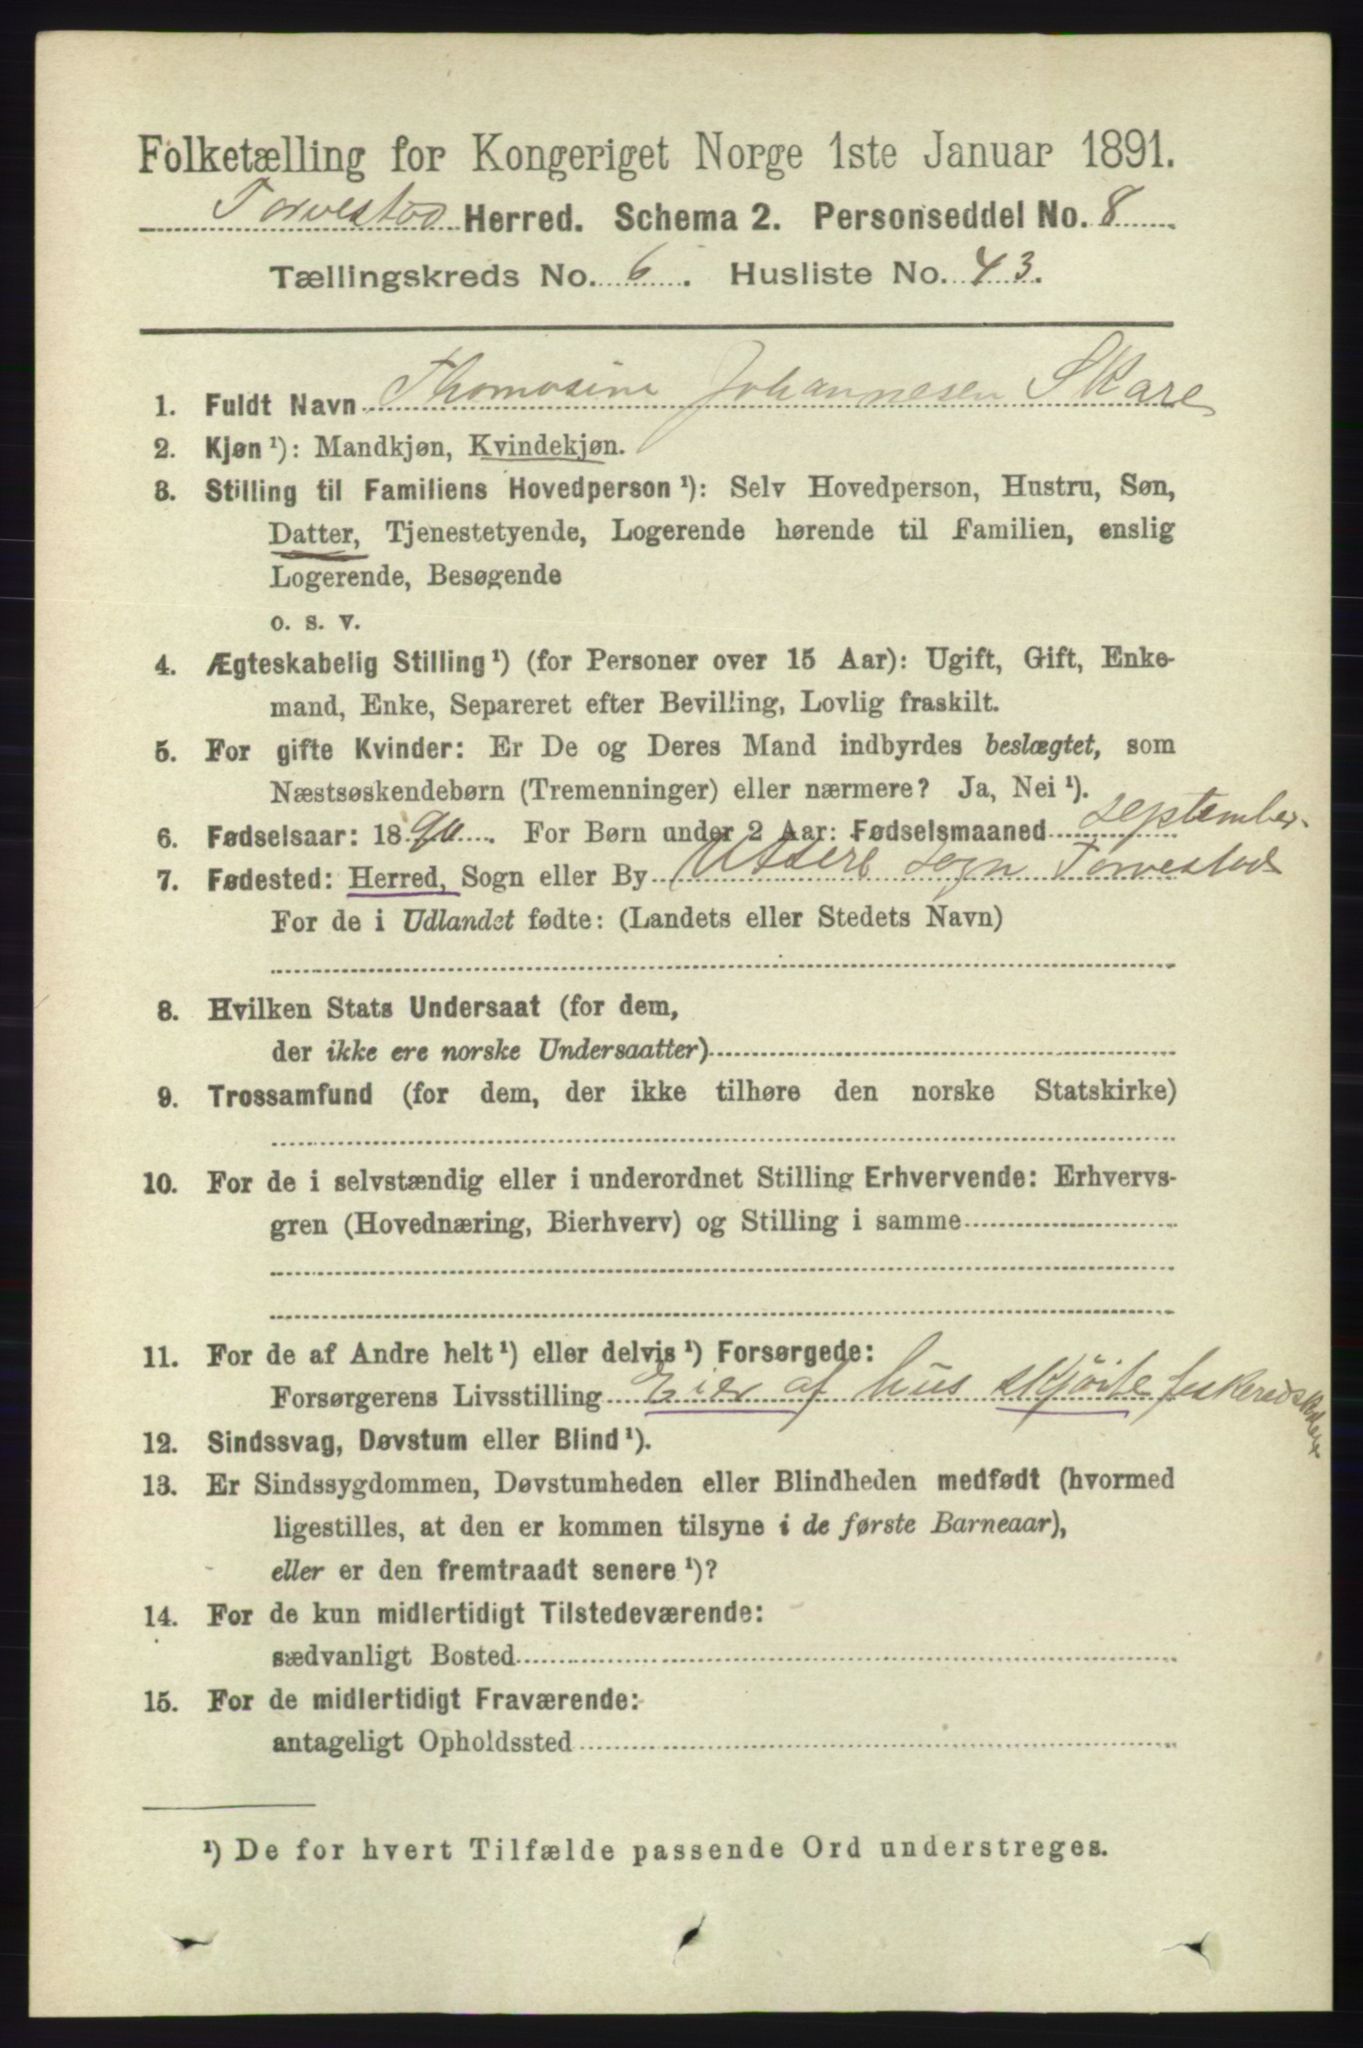 Folketælling for Kongeriget Norge 1ste Januar 1891.
Torvestad Herred. Schema 2. Personseddel No. 8
Tællingskreds No. 6. Husliste No. 43.
1. Fuldt Navn Thomasine Johannesen Skare
2. Kjøn ¹): Mandkjøn, Kvindekjøn.
3. Stilling til Familiens Hovedperson ¹): Selv Hovedperson, Hustru, Søn,
Datter, Tjenestetyende, Logerende hørende til Familien, enslig
Logerende, Besøgende
o. s. v.
4. Ægteskabelig Stilling ¹) (for Personer over 15 Aar): Ugift, Gift, Enke-
mand, Enke, Separeret efter Bevilling, Lovlig fraskilt.
5. For gifte Kvinder: Er De og Deres Mand indbyrdes beslægtet, som
Næstsøskendebørn (Tremenninger) eller nærmere? Ja, Nei ¹).
6. Fødselsaar: 1890. For Børn under 2 Aar: Fødselsmaaned september
7. Fødested: Herred, Sogn eller By Utsere sogn Torvestad
For de i Udlandet fødte: (Landets eller Stedets Navn)
8. Hvilken Stats Undersaat (for dem,
der ikke ere norske Undersaatter)
9. Trossamfund (for dem, der ikke tilhøre den norske Statskirke)
10. For de i selvstændig eller i underordnet Stilling Erhvervende: Erhvervs-
gren (Hovednæring, Bierhverv) og Stilling i samme
11. For de af Andre helt ¹) eller delvis ¹) Forsørgede:
Forsørgerens Livsstilling Eier af hus skjöite
12. Sindssvag, Døvstum eller Blind ¹).
13. Er Sindssygdommen, Døvstumheden eller Blindheden medfødt (hvormed
ligestilles, at den er kommen tilsyne i de første Barneaar),
eller er den fremtraadt senere ¹)?
14. For de kun midlertidigt Tilstedeværende:
sædvanligt Bosted
15. For de midlertidigt Fraværende:
antageligt Opholdssted
¹) De for hvert Tilfælde passende Ord understreges.